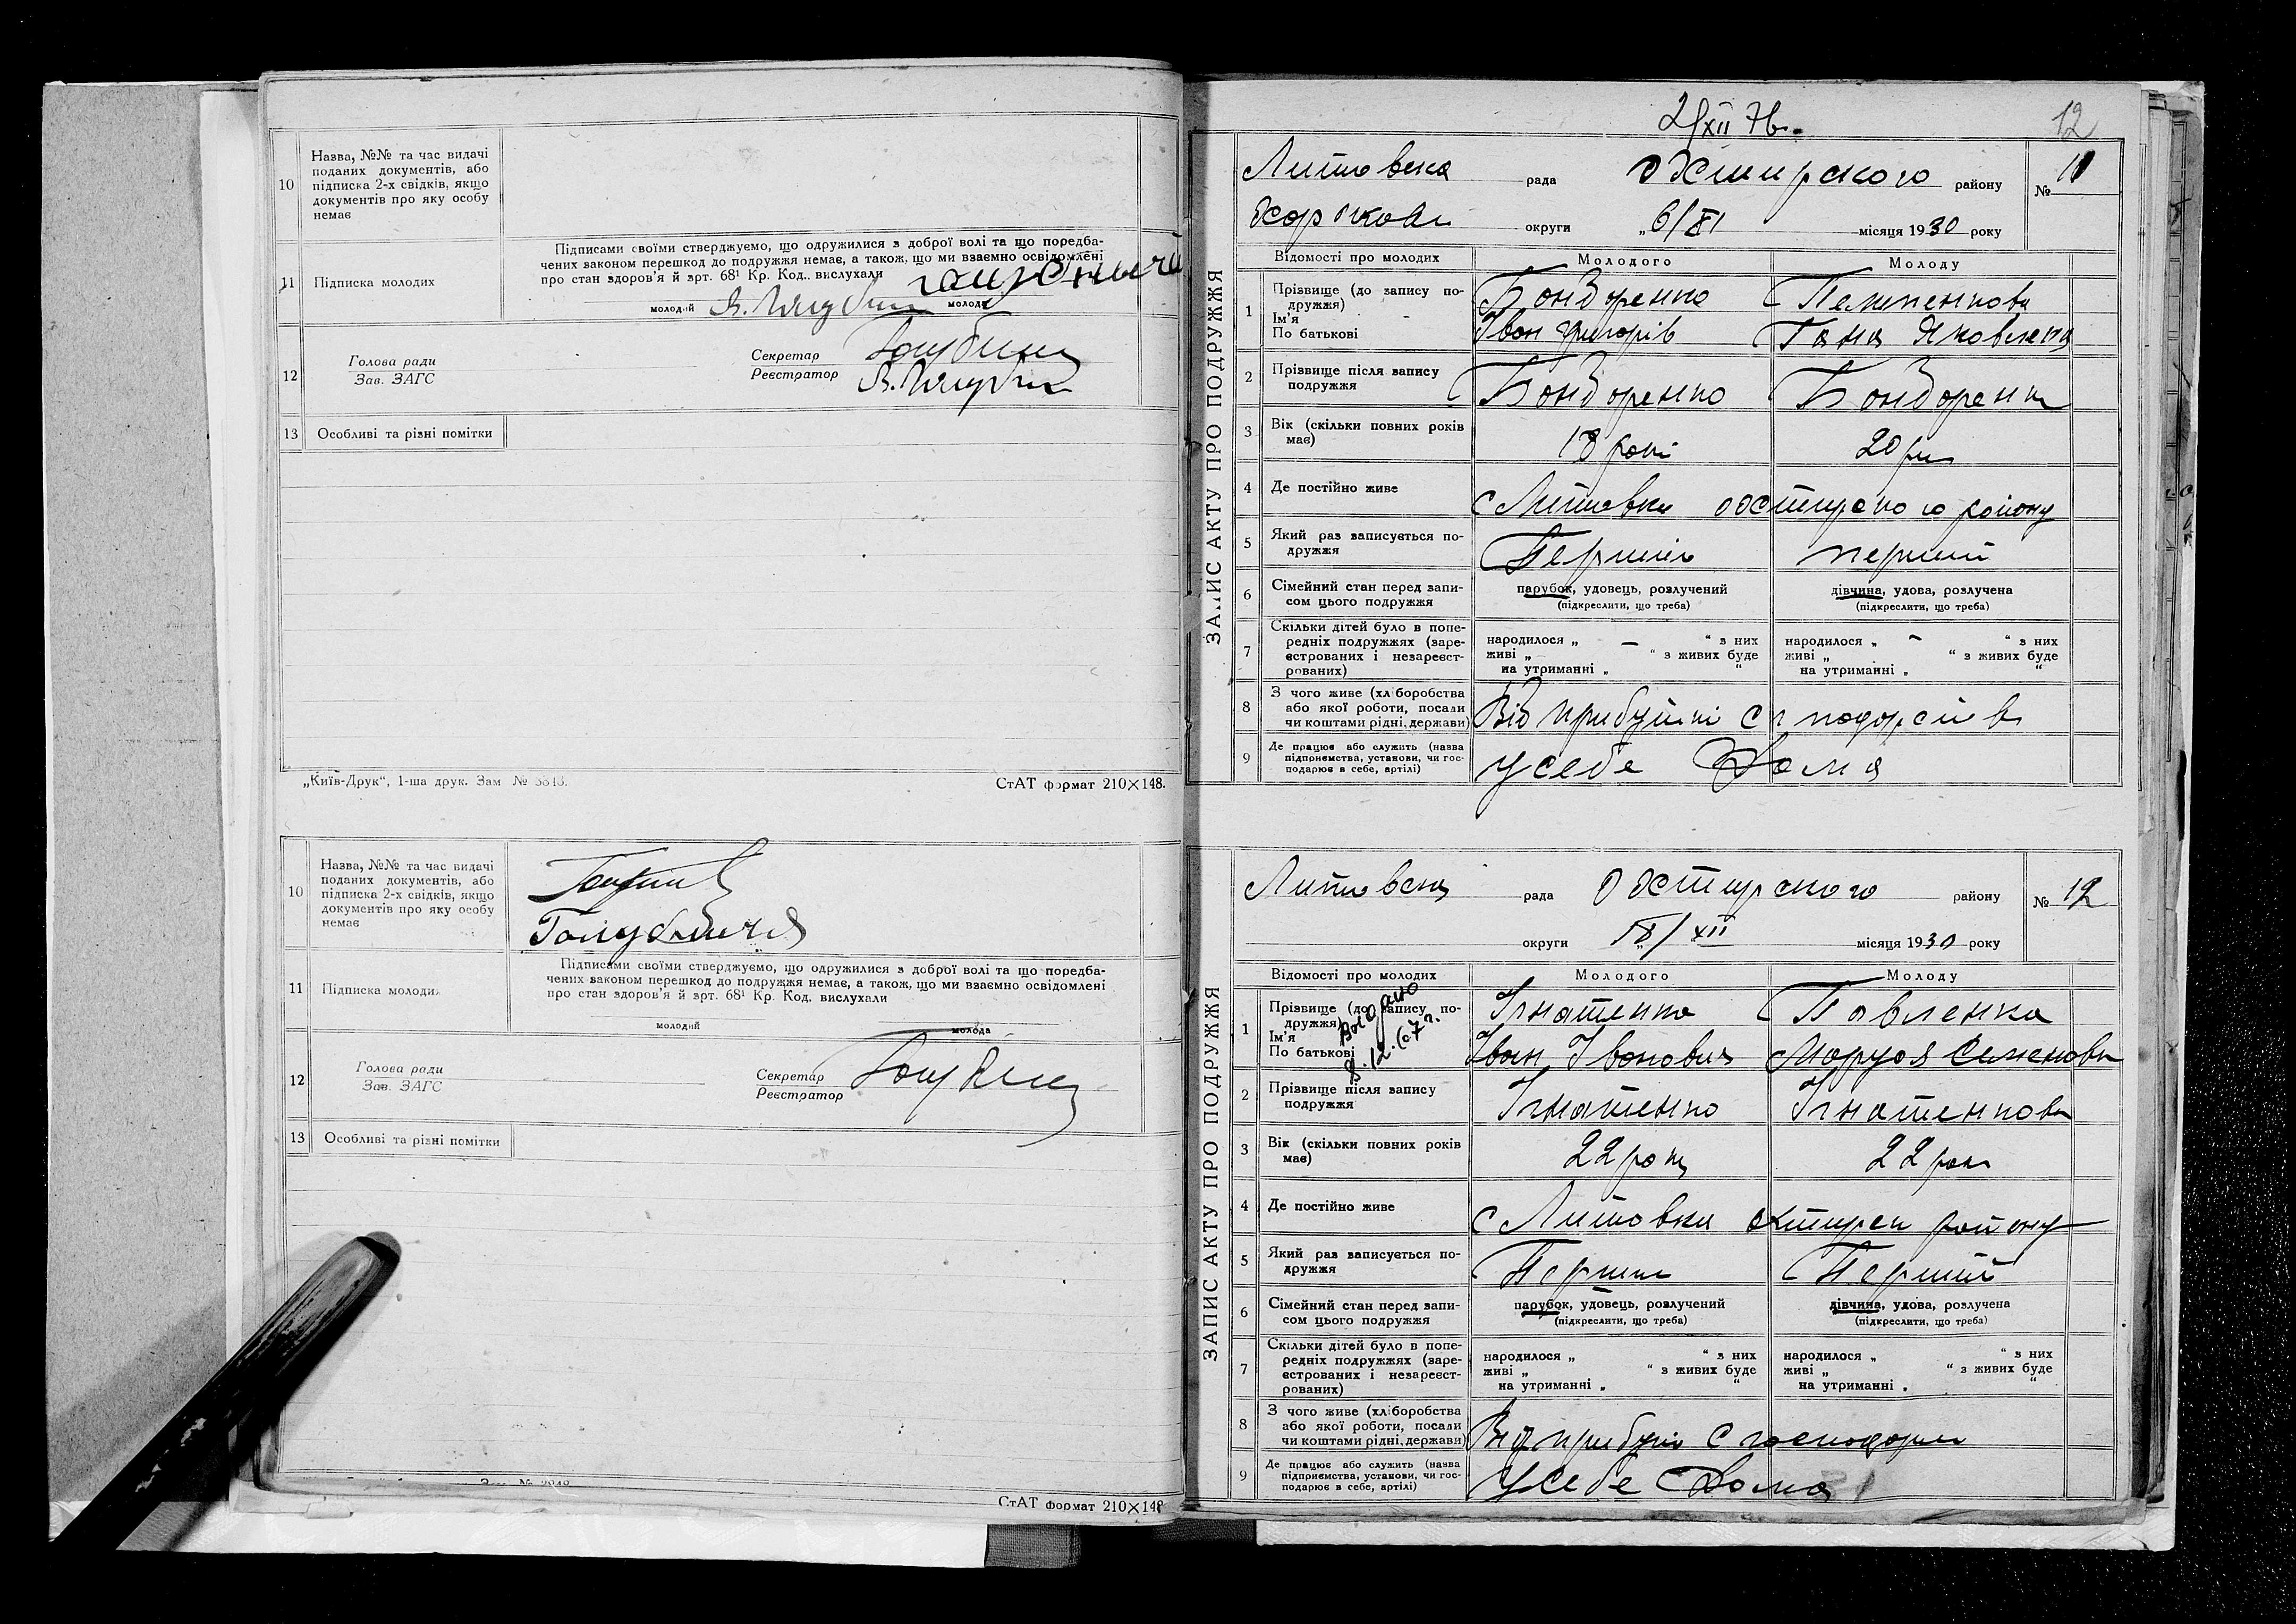 10
Назва, №№ та час видачі
поданих документів, або
підписка 2-х свідків, якщо
документів про яку особу
немає
11
Підписка молодих
Підписами своїми стверджуємо, що одружилися з доброї волі та що поредба-
чених законом перешкод до подружжя немає, а також, що ми взаємно освідомлені
про стан здоров'я й арт. 68¹ Кр. Код. вислухали
молодий
молода
12
Голова ради
Зав. ЗАГС
Секретар
Реєстратор
13
Особливі та різні помітки
„Київ-Друк“, 1-ша друк. Зам № 3848.
СтАТ формат 210×148.
10
Назва, №№ та час видачі
поданих документів, або
підписка 2-х свідків, якщо
документів про яку особу
немає
11
Підписка молодих
Підписами своїми стверджуємо, що одружилися з доброї волі та що поредба-
чених законом перешкод до подружжя немає, а також, що ми взаємно освідомлені
про стан здоров'я й арт. 68¹ Кр. Код. вислухали
молодий
молода
12
Голова ради
Зав. ЗАГС
Секретар
Реєстратор
13
Особливі та різні помітки
СтАТ формат 210×148
12
ЗАПИС АКТУ ПРО ПОДРУЖЖЯ
Литовська рада Охтирского району № 11
округи „6/XI місяця 1930 року
Відомості про молодих
Молодого
Молоду
1
Прізвище (до запису по-
дружжя)
Ім'я
По батькові
Бондоренко
Іван Григорів
Гана Яковлена
2
Прізвище після запису
подружжя
Бондоренко
Бондоренк
3
Вік (скільки повних років
має)
18 рокі
20 рк
4
Де постійно живе
с Литовки охтирского району
5
Який раз записується по-
дружжя
Перший
перший
6
Сімейний стан перед запи-
сом цього подружжя
парубок, удовець, розлучений
(підкреслити, що треба)
дівчина, удова, розлучена
(підкреслити, що треба)
7
Скільки дітей було в попе-
редніх подружжях (заре-
єстрованих і незареєст-
рованих)
народилося „ — “ з них
живі „ “ з живих буде
на утриманні „ “
народилося „ - “ з них
живі „ “ з живих буде
на утриманні „ “
8
З чого живе (хліборобства
або якої роботи, посади
чи коштами рідні, держави)
Від прибуткі с
9
Де працює або служить (назва
підприємства, установи, чи гос-
подарює в себе, артілі)
у себе Дома
ЗАПИС АКТУ ПРО ПОДРУЖЖЯ
Литовська рада Охтирского району № 12
округи 18/XII місяця 1930 року
Відомості про молодих
Молодого
Молоду
1
Прізвище (до запису по-
дружжя)
Ім'я
По батькові
8.12.67г.
Ігнатенко
Іван Іванович
Павленко
Маруся Семеновн
2
Прізвище після запису
подружжя
Ігнатенко
Ігнатенкова
3
Вік (скільки повних років
має)
22 роки
22 роки
4
Де постійно живе
с Литовки охтирск району
5
Який раз записується по-
дружжя
Перший
Перший
6
Сімейний стан перед запи-
сом цього подружжя
парубок, удовець, розлучений
(підкреслити, що треба)
дівчина, удова, розлучена
(підкреслити, що треба)
7
Скільки дітей було в попе-
редніх подружжях (заре-
єстрованих і незареєст-
рованих)
народилося „ “ з них
живі „ “ з живих буде
на утриманні „ “
народилося „ “ з них
живі „ “ з живих буде
на утриманні „ “
8
З чого живе (хліборобства
або якої роботи, посади
чи коштами рідні, держави)
Від прибуткі с господарс
9
Де працює або служить (назва
підприємства, установи, чи гос-
подарює в себе, артілі)
у себе Дома